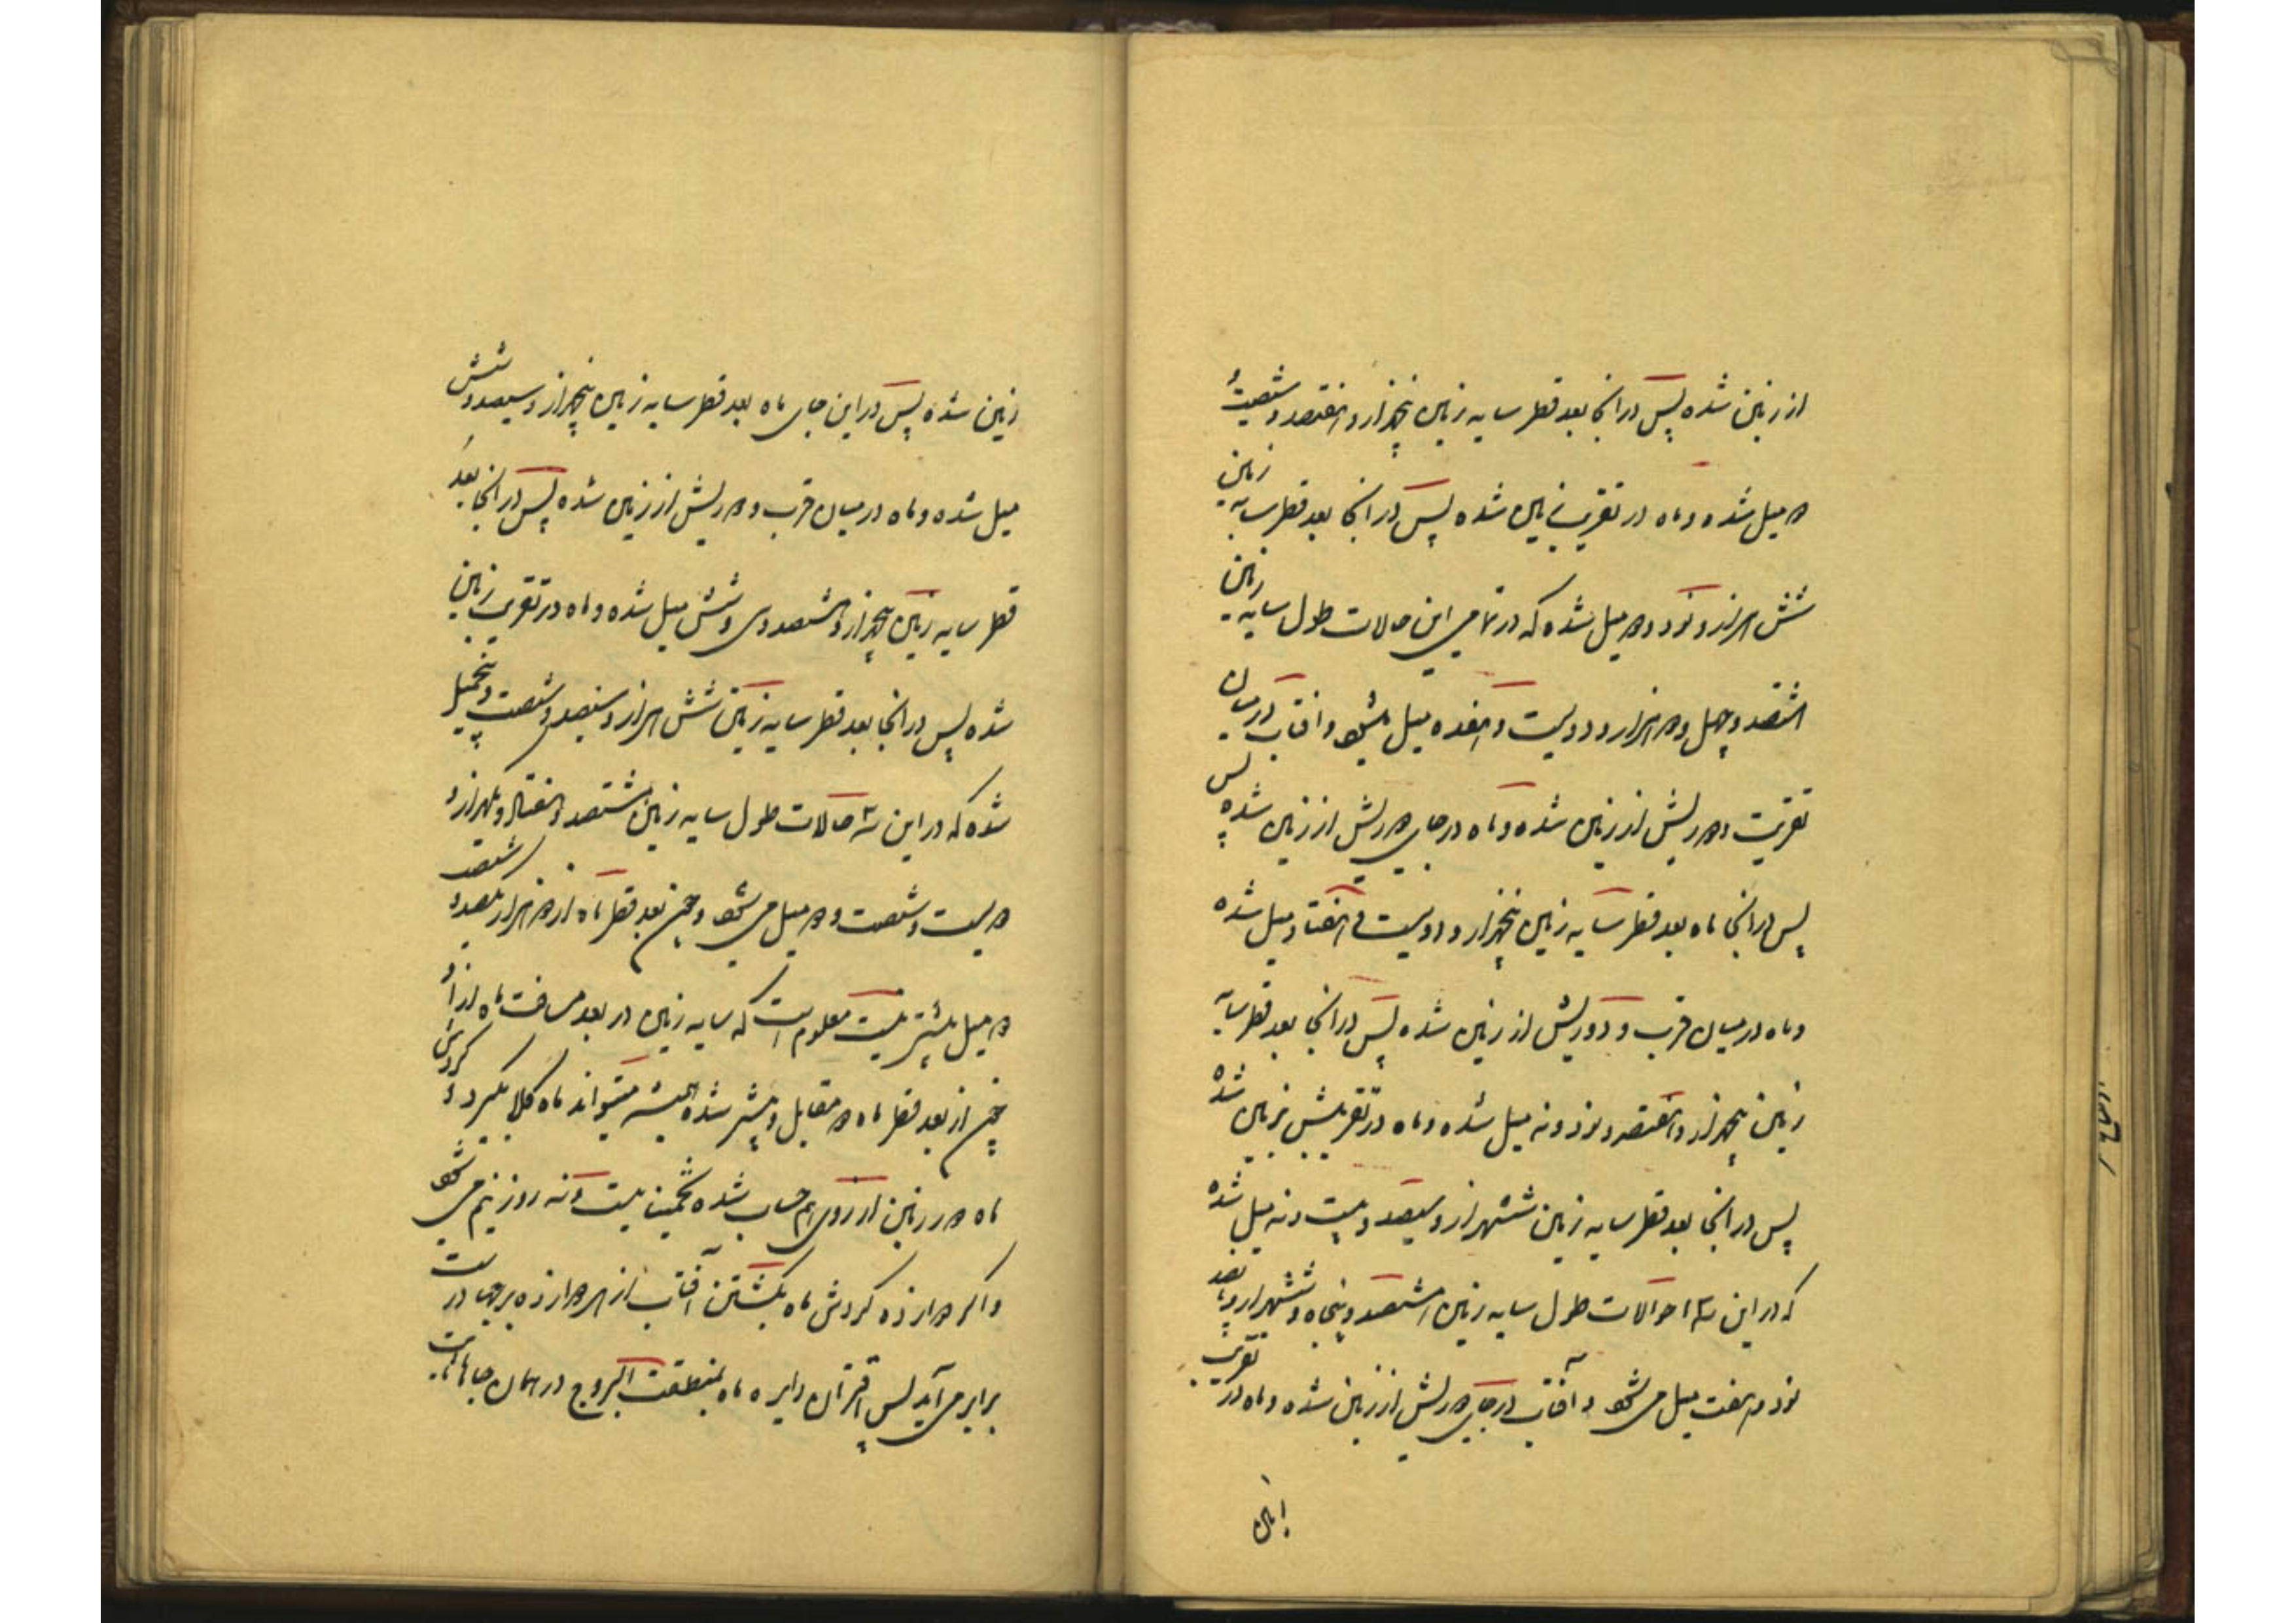 از زمین شده پس در انجا بعد قطر سایه زمین پنجهزار و هفتصد و شصت و
دو میل شده و ماه در تقریب زمین شده پس در انجا بعد قطر سایه زمین
شش هزار و نود و دو میل شده که در تمامی این حالات طول سایه زمین
هشتصد و چهل و دو هزار و دویست و هفده میل میشود و افتاب در میان
تقریب و دوریش از زمین شده و ماه در جای دوریش از زمین شده پس
پس در انجا ماه بعد قطر سایه زمین پنجهزار و دویست و هفتاد میل شده
و ماه در میان قرب و دوریش از زمین شده پس در انجا بعد قطر سایه
زمین پنجهزار و هفتصد و نود و نه میل شده و ماه در تقریبش بزمین شده
پس در انجا بعد قطر سایه زمین ششهزار و سیصد و بیست و نه میل شده
که در این سه احوالات طول سایه زمین هشتصد و پنجاه و ششهزار و پانصد
نود و هفت میل می شود و آفتاب در جای دوریش از زمین شده و ماه در تقریب
زمین شده پس در این جای ماه بعد قطر سایه زمین پنجهزار و سیصد و شش
میل شده و ماه در میان قرب و دوریش از زمین شده پس در انجا بعد
قطر سایه زمین پنجهزار و هشتصد و سی و شش میل شده و ماه در تقریب زمین
شده پس در انجا بعد قطر سایه زمین شش هزار و سیصد و شصت و پنجمیل
شده که در این سه حالات طول سایه زمین هشتصد و هفتاد و یکهزار و
دویست و شصت و دو میل می شود و چون بعد قطر ماه از دو هزار یکصد و شصت
دو میل بیشتر نیست معلوم است که سایه زمین در بعد مسافت ماه از او
چون از بعد قطر ماه دو مقابل و بیشتر شده البته میتواند ماه کلا بگیرد و گردش
ماه دور زمین از روی هم حساب شده تخمینا بیست و نه روز نیم می شود
و اگر دوازده گردش ماه بگشتن آفتاب از هر دوازده برجها درست
برابر می آید پس اقتران دایره ماه بمنطقت البروج در همان جاهاست